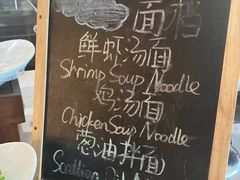 面档
鲜虾汤面
Shrimp Soup Noodle
鸡汤面
Chicken Soup Noodle
葱油拌面
Scallion